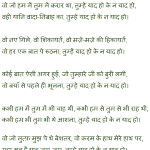 वो जो हम में तुम में क़रार था, तुम्हें याद हो के न याद हो।
वही यानि वादा-निबाह का, तुम्हें याद हो के न याद हो।
वो नए गिले, वो शिकायतें, वो मज़े-मज़े की हिकायतें,
वो हर एक बात पे रूठना, तुम्हें याद हो के न याद हो।
कोई बात ऐसी अगर हुई, जो तुम्हारे जी को बुरी लगी,
तो बयाँ से पहले ही भूलना, तुम्हें याद हो के न याद हो।
कभी हम में तुम में भी चाह थी, कभी हम से तुम से भी राह थी,
कभी हम भी तुम भी थे आशना, तुम्हें याद हो के न याद हो।
वो जो लुत्फ़ मुझ पे थे बेश्तर, वो करम के हाथ मेरे हाथ पर,